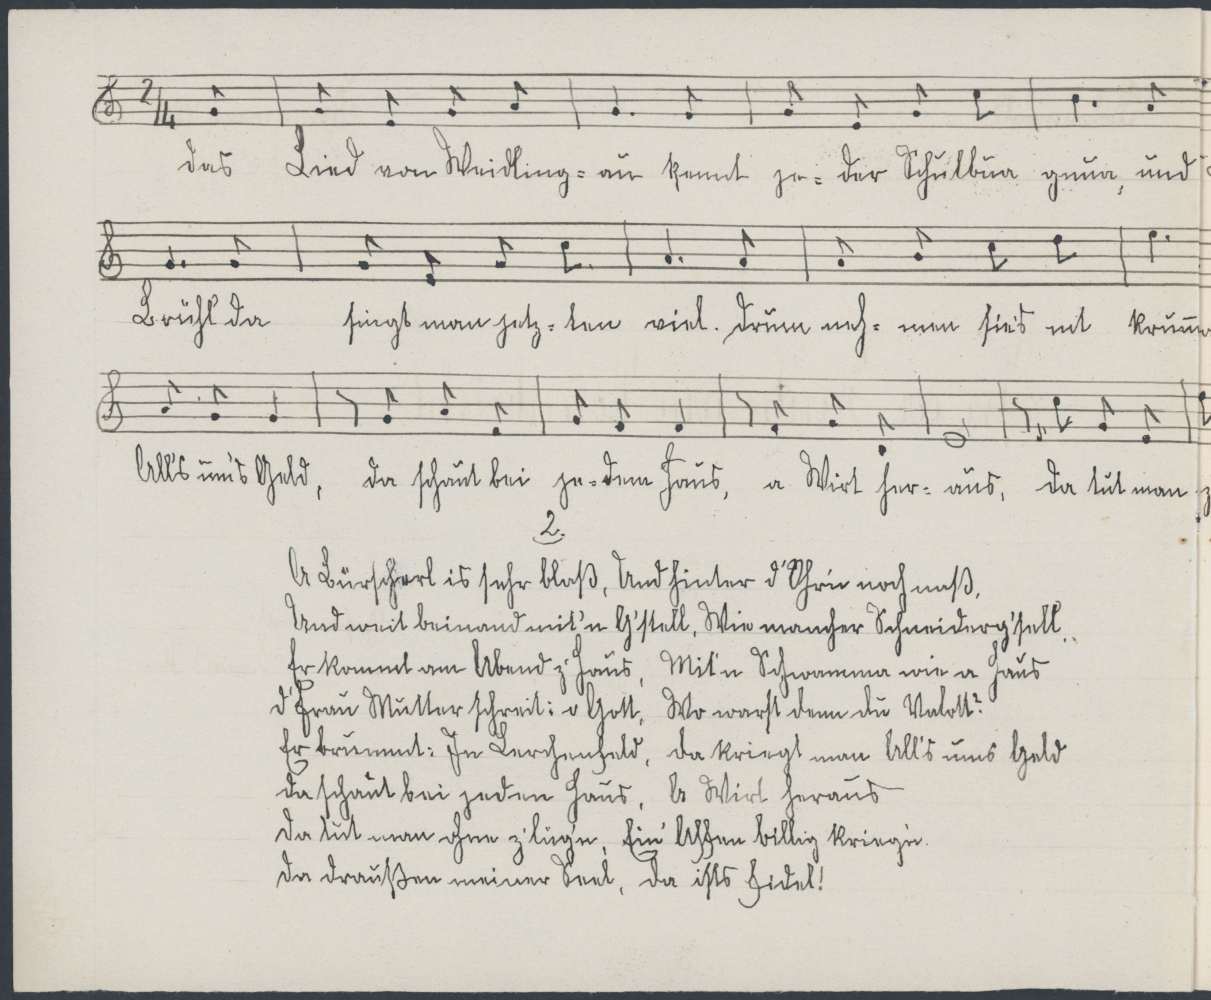 2/4
das Lied von Weidling= au kennt je= der Schulbua gnua, und
Brühl da singt man jetz= ten viel. Drum neh= men sie's nit
All's um's Geld, da schaut bei je=dem Haus, a Wirt her= aus, da tut man
2.
A Bürscherl is sehr blaß, Und hinter d'Ohr'n noch naß,
Und weit beinand mit'n G'stell, Wie mancher Schneiderg'sell.
Er kommt am Abend z'Haus, Mit'n Schwamma wie a Haus
d'Frau Mutter schreit: o Gott, Wo warst denn du Valott?
Er brummt: In Lerchenfeld, da kriegt man All's ums Geld
da schaut bei jeden Haus, A Wirt heraus
da tut man ohne z'lüg'n, Ein' Affen billig krieg'n.
da draußen meiner Seel, da ists fidel!